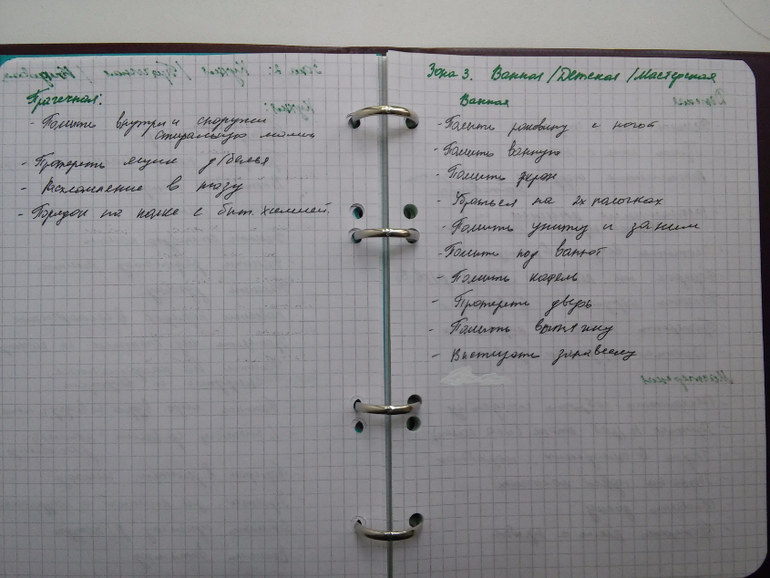 Прачечная:
- Помыть внутри и снаружи
стиральную машину
- Протереть ящик д/белья
- Расхламление в тазу
- Порядок на полке с быт. химией.
Зона 3. Ванная/Детская/Мастерская
Ванная
- Помыть раковину с ногой
- Помыть ванную
- Помыть экран
- Убраться на 2х полочках
- Помыть унитаз и за ним
- Помыть под ванной
- Помыть кафель
- Протереть дверь
- Помыть вытяжку
- Выстирать занавеску